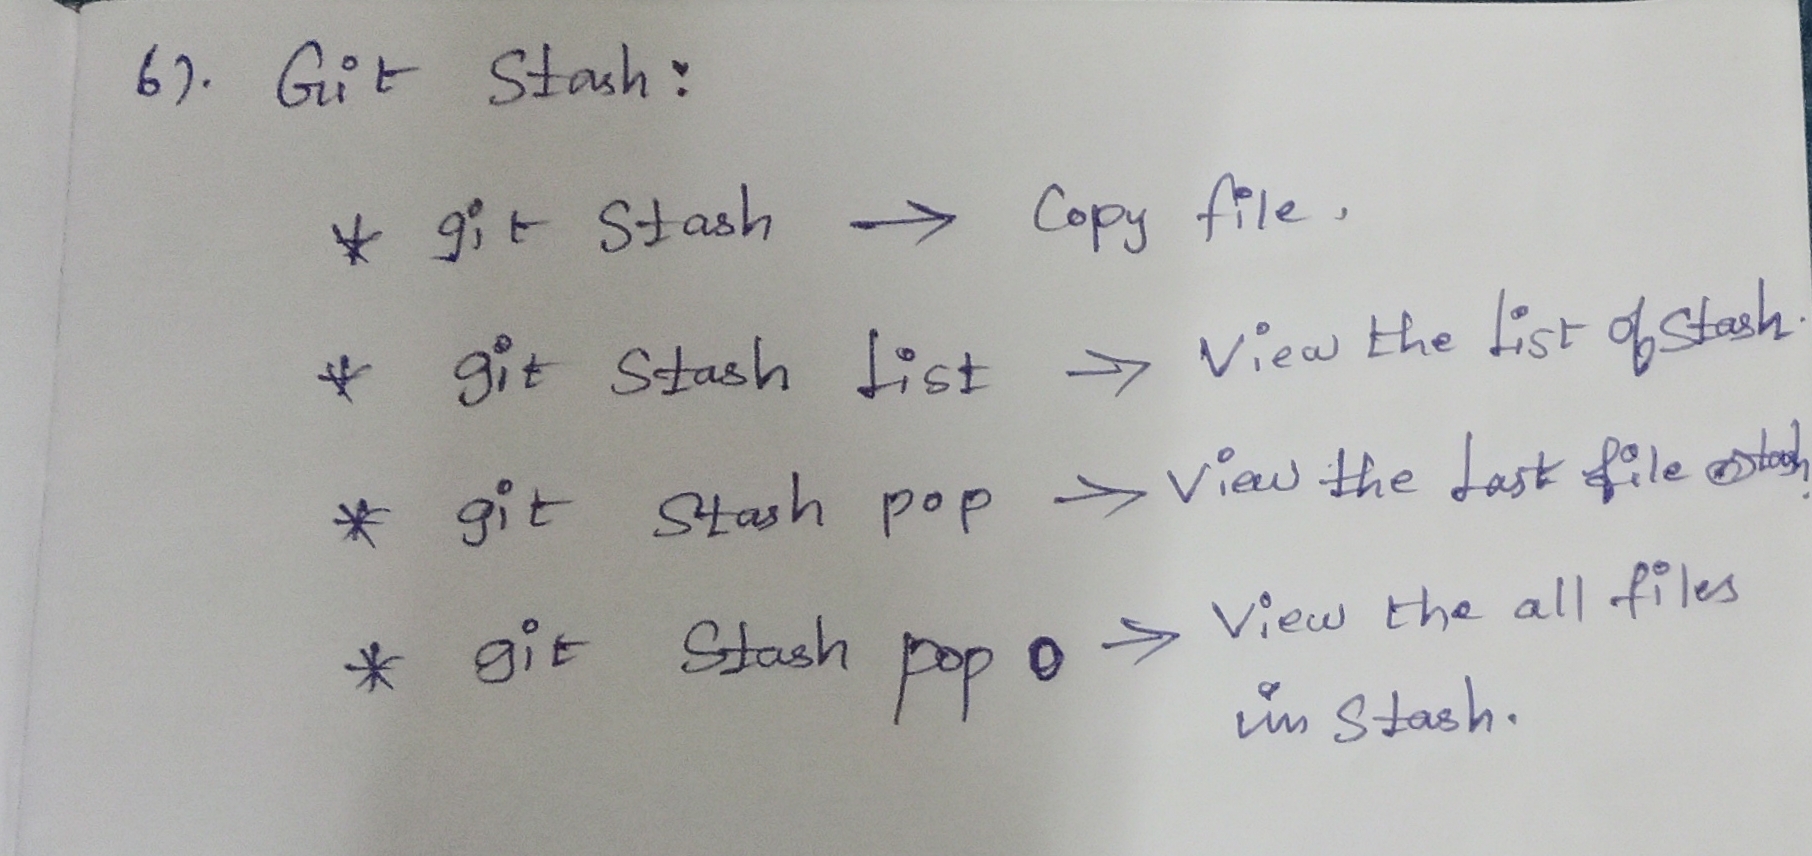 6). Git Stash:
* git Stash → Copy file.
* git Stash List → View the List of Stash.
* git Stash pop → View the Last file stash.
* git Stash pop 0 → View the all files
in Stash.